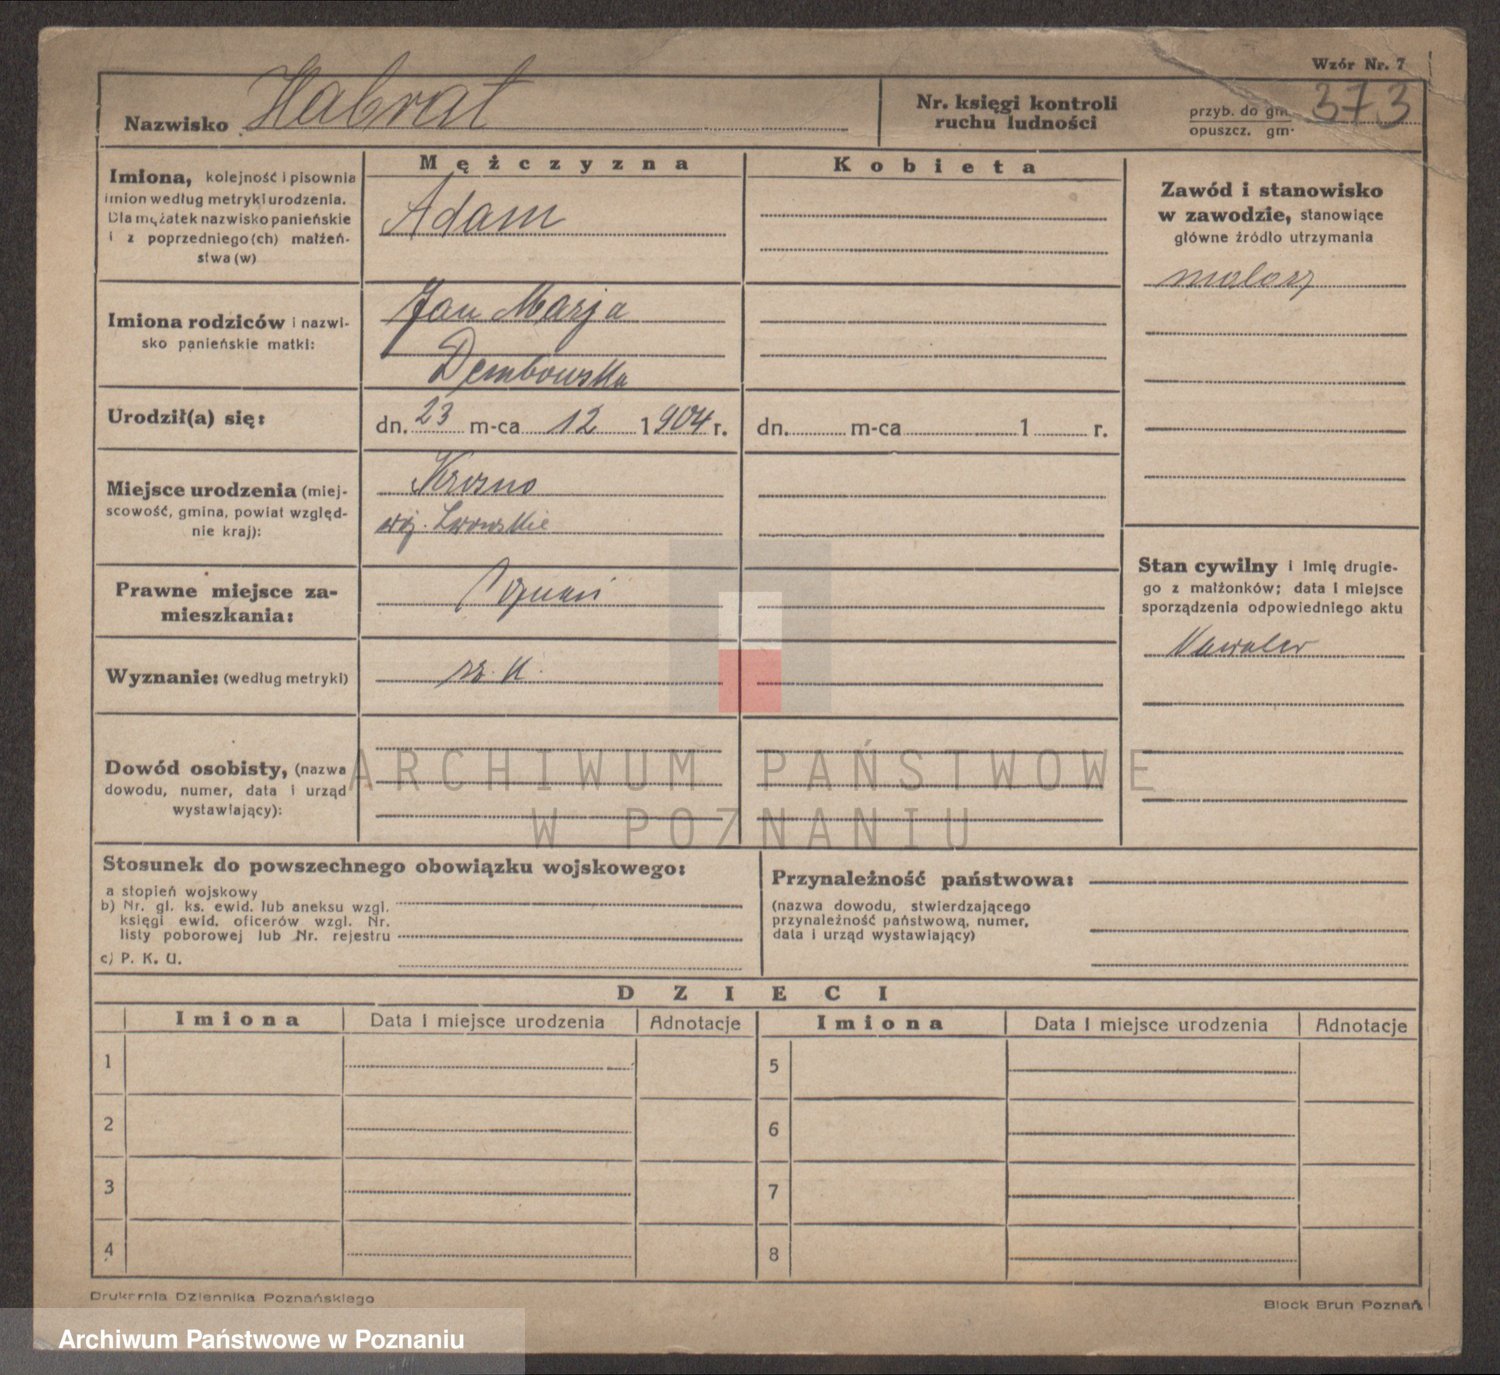 Wzór Nr. 7
Nazwisko Habrat
Nr. księgi kontroli
ruchu ludności
przyb. do gm.
opuszcz. gm.
373
Imiona, kolejność i pisownia
imion według metryki urodzenia.
Dla mężatek nazwisko panieńskie
i z poprzedniego(ch) małżeń-
stwa(w)
Mężczyzna
Adam
Kobieta
Zawód i stanowisko
w zawodzie, stanowiące
główne źródło utrzymania
malarz
Imiona rodziców i nazwi-
sko panieńskie matki:
Jan Marja
Dembowska
Urodził(a) się:
dn. 23 m-ca 12 1904 r.
dn. m-ca 1 r.
Miejsce urodzenia (miej-
scowość, gmina, powiat względ-
nie kraj):
Krosno
woj. Lwowskie
Prawne miejsce za-
mieszkania:
Poznań
Stan cywilny i imię drugie-
go z małżonków; data i miejsce
sporządzenia odpowiedniego aktu
Kawaler
Wyznanie: (według metryki)
rz. k.
Dowód osobisty, (nazwa
dowodu, numer, data i urząd
wystawiający):
ARCHIWUM PAŃSTWOWE
W POZNANIU
Stosunek do powszechnego obowiązku wojskowego:
a stopień wojskowy
b) Nr. gl. ks. ewid. lub aneksu wzgl.
księgi ewid. oficerów wzgl. Nr.
listy poborowej lub Nr. rejestru
c) P. K. U.
Przynależność państwowa:
(nazwa dowodu, stwierdzającego
przynależność państwową, numer,
data i urząd wystawiający)
DZIECI
Imiona Data i miejsce urodzenia Adnotacje Imiona Data i miejsce urodzenia Adnotacje
1 5
2 6
3 7
4 8
Drukarnia Dziennika Poznańskiego
Block Brun Poznań
Archiwum Państwowe w Poznaniu